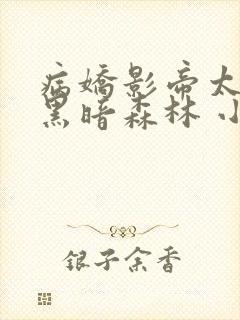 病嬌影帝太
黑暗森林 小
银子余香